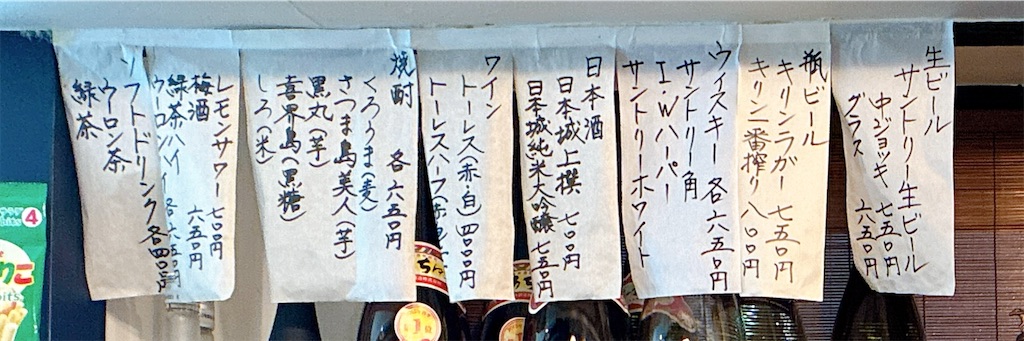 生ビール
サントリー生ビール
中ジョッキ 七五〇円
グラス 六五〇円
瓶ビール
キリンラガー 七五〇円
キリン一番搾り 八〇〇円
ウィスキー 各六五〇円
サントリー角
I・Wハーパー
サントリーホワイト
日本酒
日本城上撰 七〇〇円
日本城純米大吟醸 七五〇円
ワイン
トーレス(赤・白)四〇〇円
トーレスハーフ(赤・白
焼酎 各六五〇円
くろうま(麦)
さつま島美人(芋)
黒丸(芋)
喜界島(黒糖)
しろ(米)
レモンサワー 七〇〇円
梅酒 六五〇円
緑茶ハイ 各六五〇円
ウーロンハイ
ソフトドリンク 各四〇〇円
ウーロン茶
緑茶
4